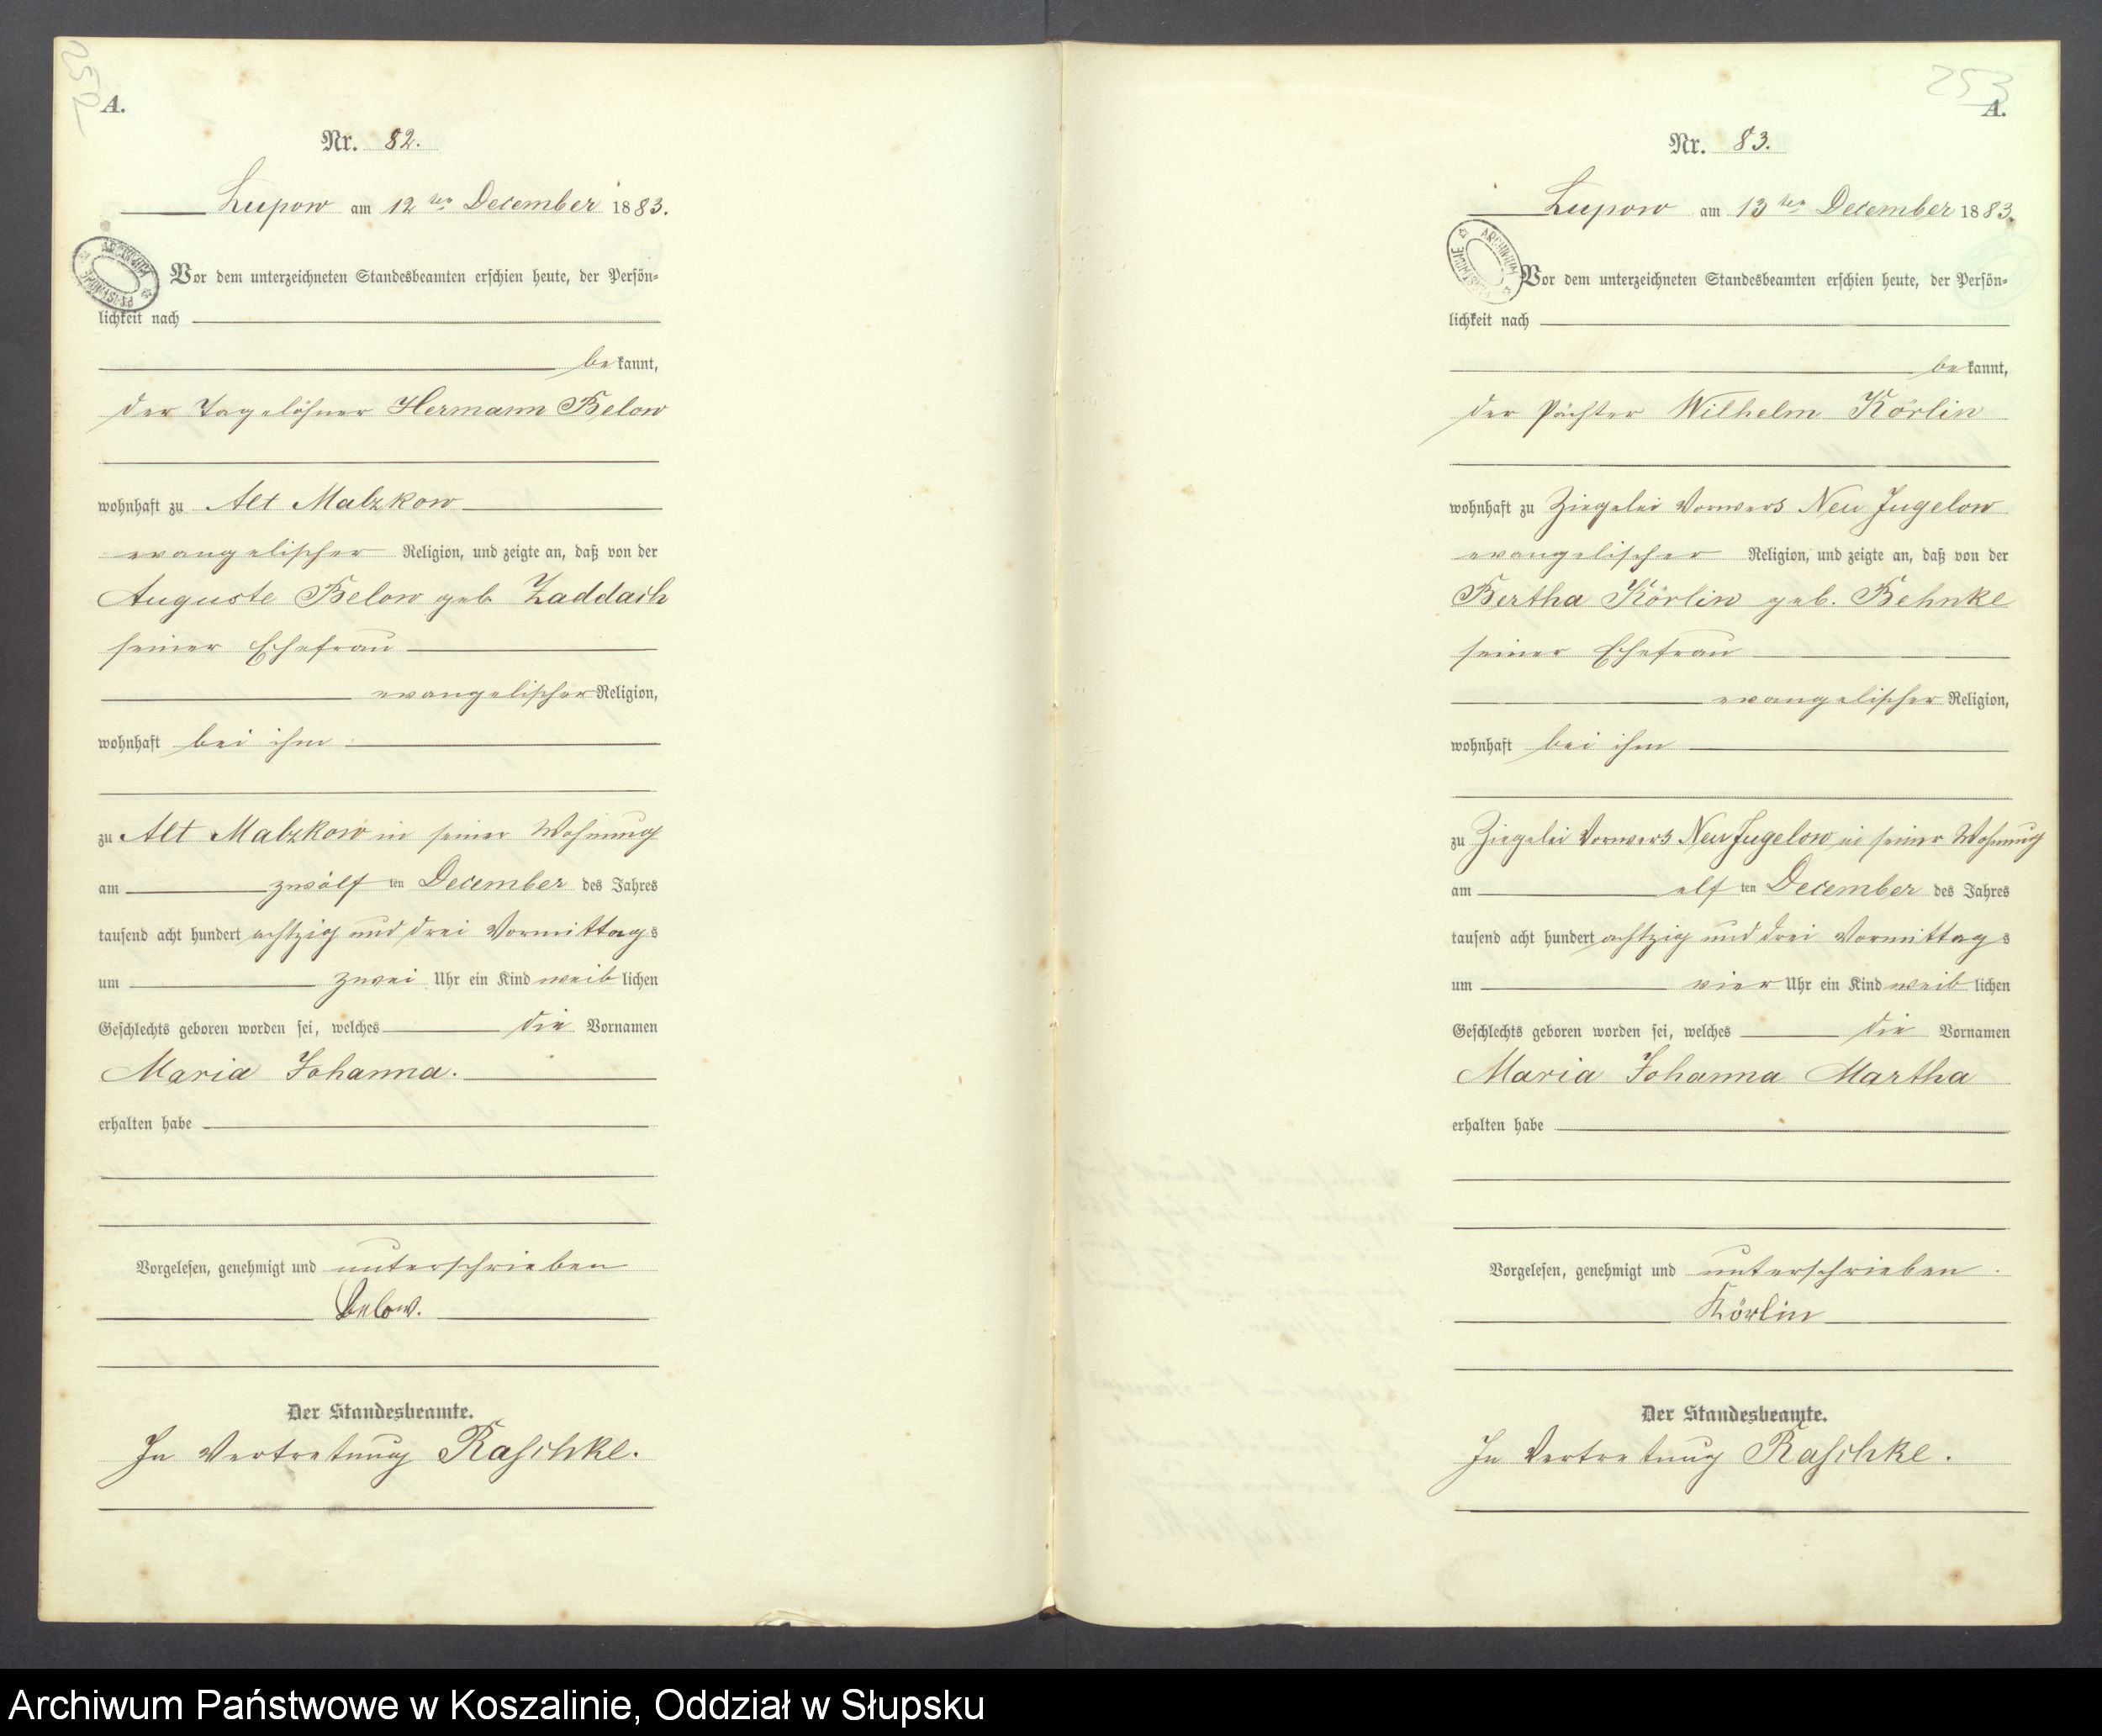 252
A.
Nr. 82.
Lupow am 12ten December 1883.
ARCHIWUM PAŃSTWOWE
Vor dem unterzeichneten Standesbeamten erschien heute, der Persön-
lichkeit nach
bekannt,
der Tagelöhner Hermann Below
wohnhaft zu Alt Malzkow
evangelischer Religion, und zeigte an, daß von der
Auguste Below geb. Zaddach
seiner Ehefrau
evangelischer Religion,
wohnhaft bei ihm
zu Alt Malzkow in seiner Wohnung
am zwölften December des Jahres
tausend acht hundert achtzig und drei Vormittags
um zwei Uhr ein Kind weiblichen
Geschlechts geboren worden sei, welches die Vornamen
Maria Johanna.
erhalten habe
Vorgelesen, genehmigt und unterschrieben
Below.
Der Standesbeamte.
In Vertretung Raschke.
253
A.
Nr. 83.
Lupow am 13ten December 1883.
ARCHIWUM PAŃSTWOWE
Vor dem unterzeichneten Standesbeamten erschien heute, der Persön-
lichkeit nach
bekannt,
der Pächter Wilhelm Körlin
wohnhaft zu Ziegelei Vorwerk Neu Jugelow
evangelischer Religion, und zeigte an, daß von der
Bertha Körlin geb. Behnke
seiner Ehefrau
evangelischer Religion,
wohnhaft bei ihm
zu Ziegelei Vorwerk Neu Jugelow in seiner Wohnung
am elften December des Jahres
tausend acht hundert achtzig und drei Vormittags
um vier Uhr ein Kind weiblichen
Geschlechts geboren worden sei, welches die Vornamen
Maria Johanna Martha
erhalten habe
Vorgelesen, genehmigt und unterschrieben.
Körlin
Der Standesbeamte.
In Vertretung Raschke.
Archiwum Państwowe w Koszalinie, Oddział w Słupsku